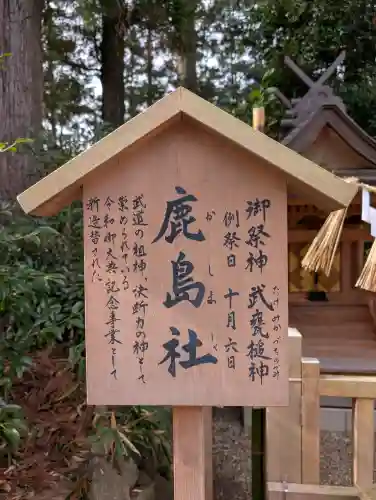 御祭神 武甕槌神
たけみかづちのかみ
例祭日 十月六日
鹿島社
かしましゃ
武道の祖神 決断力の神として
崇められている
令和御大典記念事業として
新造替された